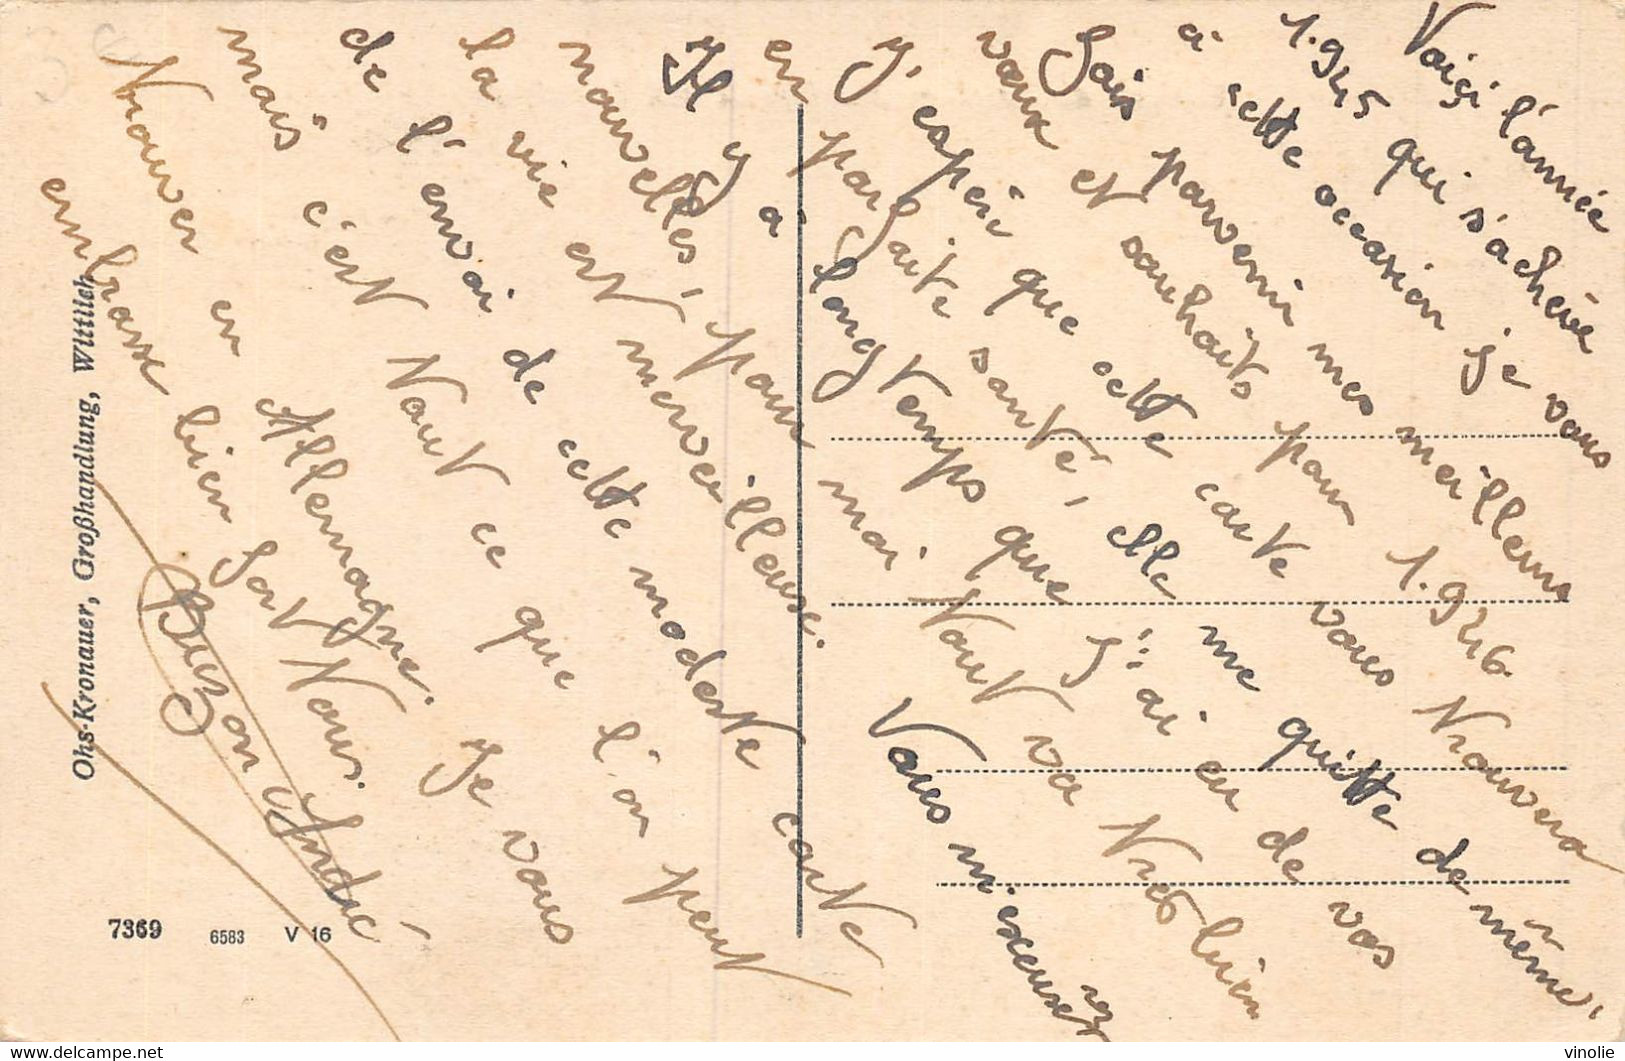 Voiçi l'année
1.945 qui s'achève
à cette occasion je vous
fais parvenir mes meilleurs
vœux et souhaits pour 1.946
j, espère que cette carte vous trouvera
en parfaite santé, elle me quitte de même,
Il y à long temps que j'ai eu de vos
nouvelles, pour moi tout va très bien
la vie est merveilleuse. Vous m'excuserez
de l'envoi de cette modeste carte
mais c'est tout ce que l'on peut
trouver en Allemagne. Je vous
embrasse bien fort tous.
Buzon André
Ohs-Kronauer, Großhandlung, Wittlich
7369 6583 V 16
delcampe.net
vinolie